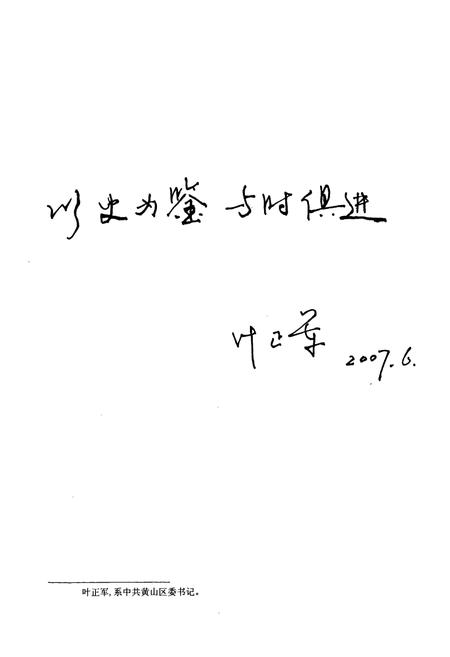 以史为鉴 与时俱进
叶正军 2007.6.
叶正军,系中共黄山区委书记。